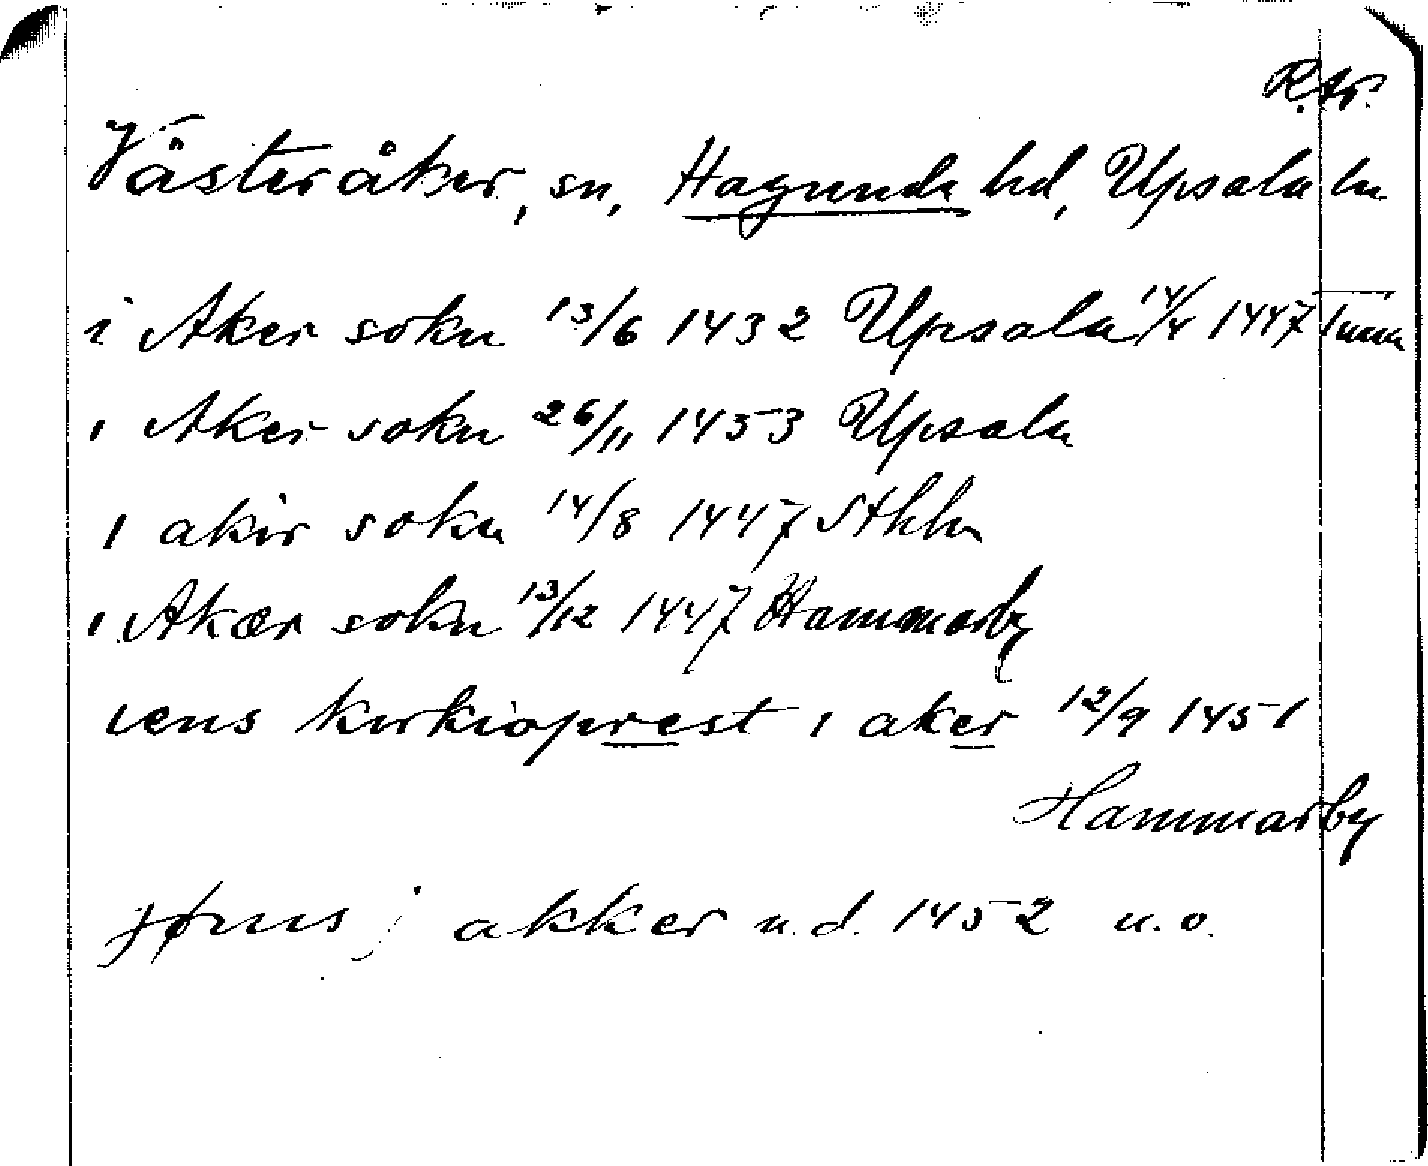 R. Ar.
Västeråker, sn, Hagunda hd, Upsala ln
i Aker sokn 13/6 1432 Upsala 14/4 1447 Tuna
i Aker sokn 26/11 1453 Upsala
i akir sokn 14/8 1447 Sthlm
i Akær sokn 13/12 1447 Hammarby
iens kirkioprest i aker 12/9 1451
Hammarby
jøns j akker u.d. 1452 u.o.